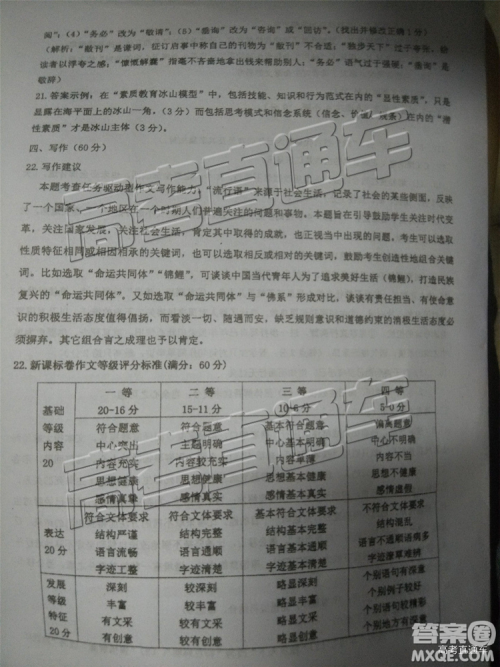 闻”；（4）“务必”改为“敬请”；（5）“垂询”改为“咨询”或“回访”。（找出并修改正确1分）
（解析：“敝刊”是谦词，征订启事中称自己的刊物为“敝刊”不合适；“独步天下”过于夸张，给读
者以浮夸之感；“慷慨解囊”指毫不吝啬地拿出钱来帮助别人；“务必”语气过于强硬；“垂询”是
敬辞）
21.答案示例：在“素质教育冰山模型”中，包括技能、知识和行为范式在内的“显性素质”，只是
显露在海平面上的冰山一角。（3分）而包括思考模式和信念系统（信念、价值、规条）在内的“潜
性素质”才是冰山主体（3分）。
四、写作（60分）
22.写作建议
本题考查任务驱动型作文写作能力。“流行语”来源于社会生活，记录了社会的某些侧面，反映了
一个国家、一个地区在一个时期人们普遍关注的问题和事物。本大题，旨在引导鼓励学生关注时代变
革，关注国家发展，关注社会生活，肯定其中取得的成就，也正视当中出现的问题。考生可以选取
性质特征相同或相近或相承相因相合的关键词，也可以选取相反或相悖的关键词，鼓励考生创造性地组合关键
词。比如选取“命运共同体”“锦鲤”，可谈谈中国当代青年人为了追求美好生活（锦鲤），打造民族
复兴的“命运共同体”，又如选取“命运共同体”与“佛系”形成对比，谈谈有责任担当、有使命意
识的积极生活态度值得倡扬，而看淡一切、随遇而安、缺乏规则意识和道德约束的消极生活态度必
须摒弃。其它组合言之成理也予以肯定。
22.新课标卷作文等级评分标准(满分：60分)
一等 二等 三等 四等
20-16分 15-11分 10-6分 5-0分
基础等级 内容 20
符合题意 符合题意 基本符合题意 偏离题意
中心突出 主题明确 中心基本明确 中心不明确
内容充实 内容较充实 内容单薄 内容不当
思想健康 思想健康 思想基本健康 思想不健康
感情真挚 感情真实 感情基本真实 感情虚假
表达 20分
符合文体要求 符合文体要求 基本符合文体要求 不符合文体要求
结构严谨 结构完整 结构基本完整 结构混乱
语言流畅 语言通顺 语言基本通顺 语言不通顺语病多
字迹工整 字迹清楚 字迹基本清楚 字迹潦草难辨
发展等级 特征 20分
深刻 较深刻 略显深刻 个别语句有深意
丰富 较丰富 略显丰富 个别例子较好
有文采 较有文采 略显文采 个别语句较精彩
有创意 较有创意 略显创意 个别地方有深意
高考直通车
高考直通车
答案圈
MXQE.COM
高考直通车